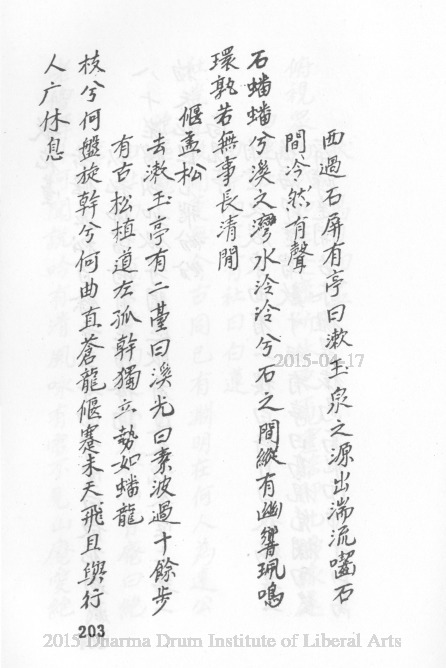 西過石屏有亭曰漱玉泉之源出湍流齧石
間冷然有聲
石蟠蟠兮溪之灣水泠泠兮石之間縱有幽響珮鳴
環孰若無事長清閒
偃盖松
去漱玉亭有二臺曰溪光曰素波過十餘步
有古松植道左孤幹獨立勢如蟠龍
枝兮何盤旋幹兮何曲直蒼龍偃蹇未天飛且與行
人广休息
203
2015-04-17
2015 Dharma Drum Institute of Liberal Arts